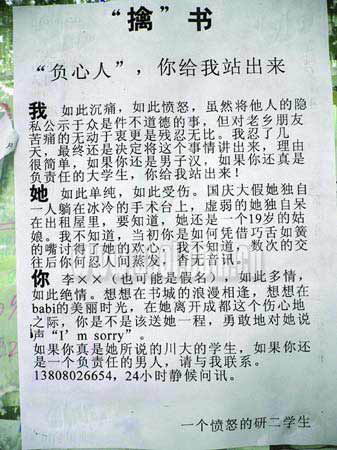 “擒”书
“负心人”，你给我站出来
我 如此沉痛，如此愤怒，虽然将他人的隐
私公示于众是件不道德的事，但对老乡朋友
苦痛的无动于衷更是残忍无比。我忍了几
天，最终还是决定将这个事情讲出来，理由
很简单，如果你还是男子汉，如果你还真是
负责任的大学生，你给我站出来！
她 如此单纯，如此受伤。国庆大假她独自
一人躺在冰冷的手术台上，虚弱的她独自呆
在出租屋里，要知道，她还是一个19岁的姑
娘。我不知道，当初你是如何凭借巧舌如簧
的嘴讨得了她的欢心，我不知道，数次的交
往后你何忍人间蒸发，杳无音讯。
你 李××（也可能是假名），如此多情，
如此绝情。想想在书城的浪漫相逢，想想在
babi的美丽时光，在她离开成都这个伤心地
之际，你是不是该送她一程，勇敢地对她说
声“I’m sorry”。
如果你真是她所说的川大的学生，如果你还
是一个负责任的男人，请与我联系。
13808026654，24小时静候问讯。
一个愤怒的研二学生